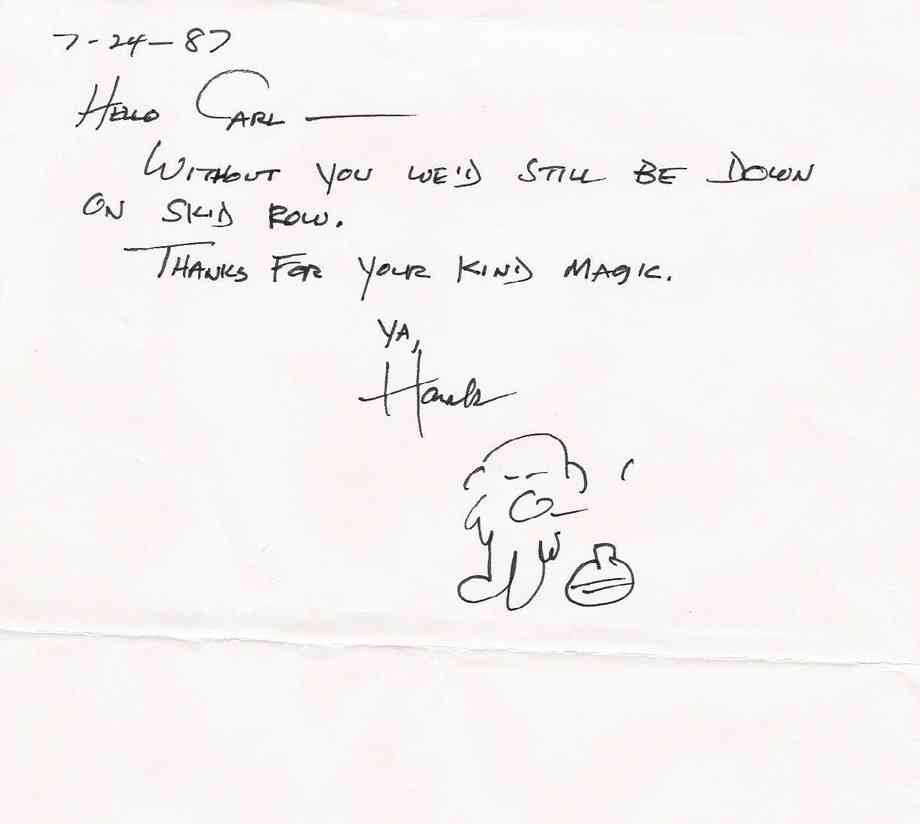 7-24-87
HELLO CARL —
WITHOUT YOU WE'D STILL BE DOWN
ON SKID ROW.
THANKS FOR YOUR KIND MAGIC.
YA,
Hank